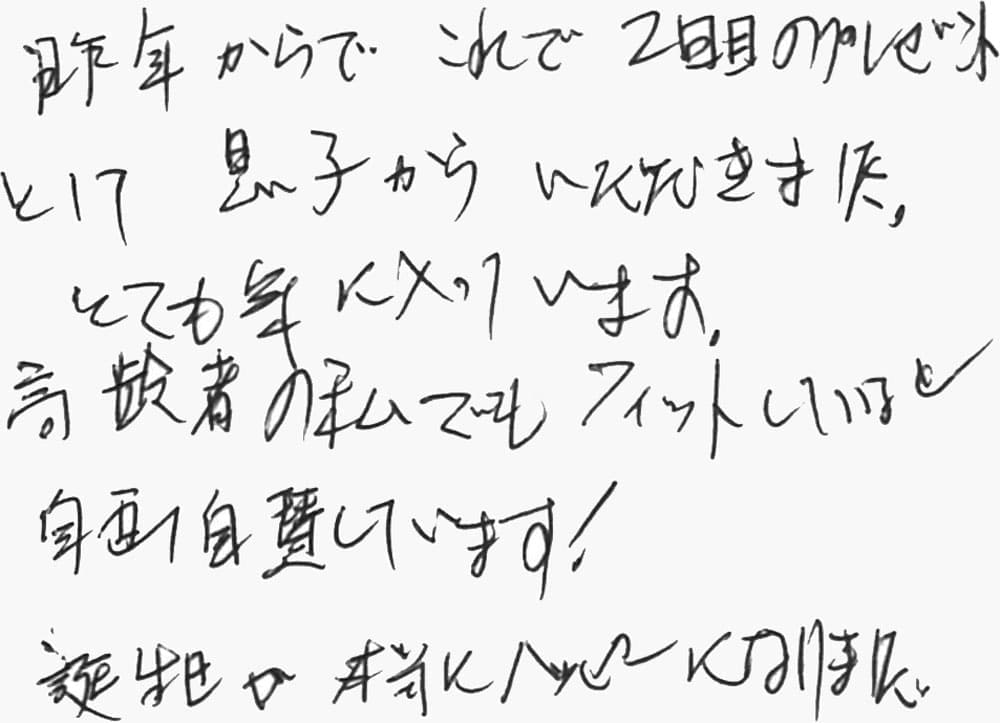 昨年からで これで 2回目のプレゼント
として 息子から いただきました。
とても気に入っています。
高齢者の私でも フィットしていると
自画自賛しています！
誕生日が 本当にハッピーになりました。